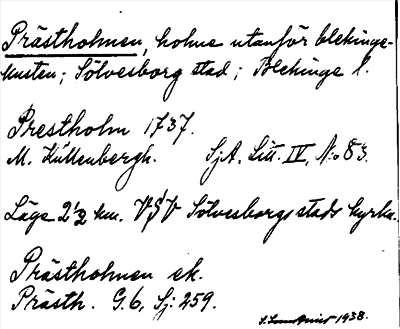 Prästholmen, holme utanför blekinge-
kusten; Sölvesborg stad; Blekinge l.
Prestholm 1737.
M. Küllenbergh. SjA. Litt. IV, N:o 83.
Läge 2 1/2 km. VSV Sölvesborgs stads kyrka.
Prästholmen ek.
Prästh. G.6, Sj: 259.
1938.